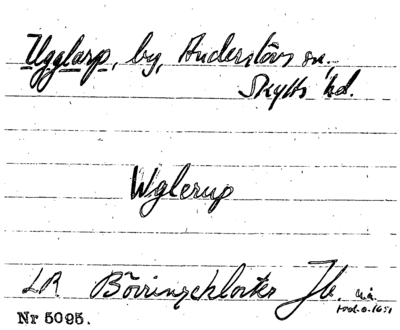 Ugglarp, by, Anderslövs sn.
Skytts hd.
Uglerup
LR Börringekloster Jb.
Nr 5095.